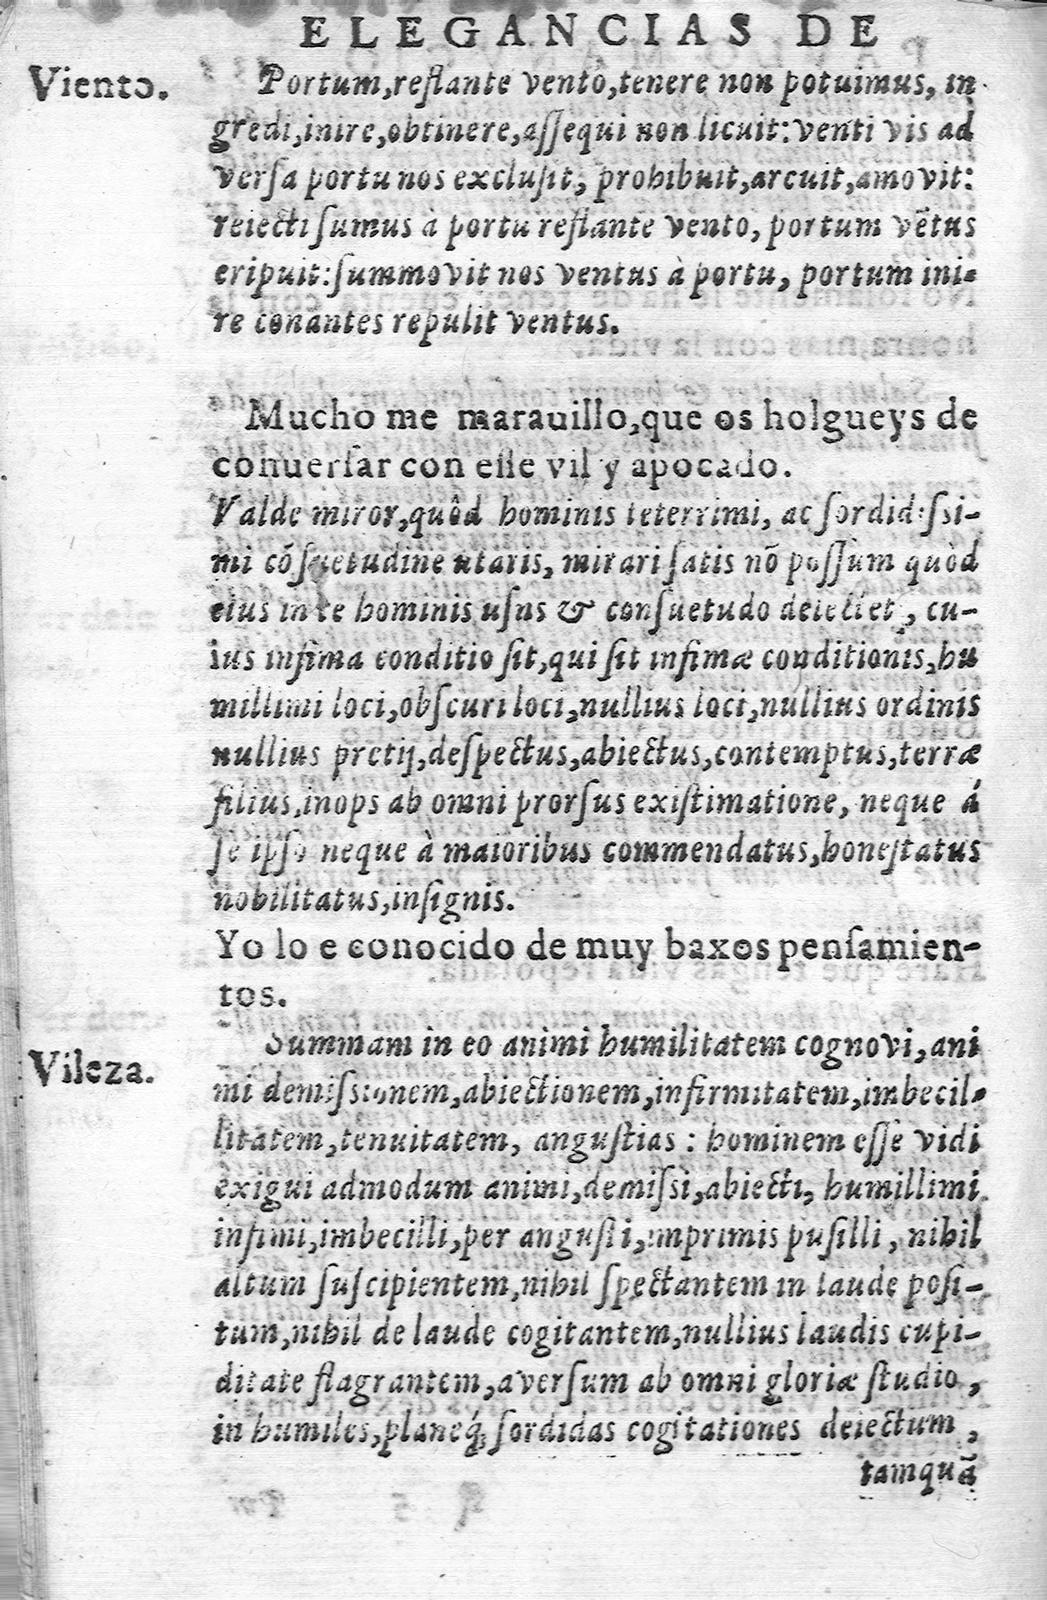 ELEGANCIAS DE
Viento.
Portum, reflante vento, tenere non potuimus, in
gredi, inire, obtinere, aſſequi non licuit: venti vis ad
verſa portu nos excluſit, prohibuit, arcuit, amovit:
reiecti ſumus à portu reflante vento, portum vẽtus
eripuit: ſummovit nos ventus à portu, portum ini-
re conantes repulit ventus.
Mucho me marauillo, que os holgueys de
conuerſar con eſſe vil y apocado.
Valde miror, quôd hominis teterrimi, ac ſordidiſsi-
mi cõſuetudine utaris, mirari ſatis nõ poſſum quòd
eius in te hominis uſus & conſuetudo delectet, cu-
ius infima conditio ſit, qui ſit infimæ conditionis, hu
millimi loci, obſcuri loci, nullius loci, nullius ordinis
nullius pretij, deſpectus, abiectus, contemptus, terræ
filius, inops ab omni prorſus exiſtimatione, neque á
ſe ipſo neque à maioribus commendatus, honeſtatus
nobilitatus, inſignis.
Yo lo e conocido de muy baxos penſamien-
tos.
Vileza.
Summam in eo animi humilitatem cognovi, ani
mi demiſsionem, abiectionem, infirmitatem, imbecil-
litatem, tenuitatem, anguſtias: hominem eſſe vidi
exigui admodum animi, demiſsi, abiecti, humillimi
infimi, imbecilli, per anguſti, imprimis puſilli, nihil
altum ſuſcipientem, nihil ſpectantem in laude poſi-
tum, nihil de laude cogitantem, nullius laudis cupi-
ditate flagrantem, averſum ab omni gloriæ ſtudio,
in humiles, planeq́; ſordidas cogitationes deiectum,
tamquã